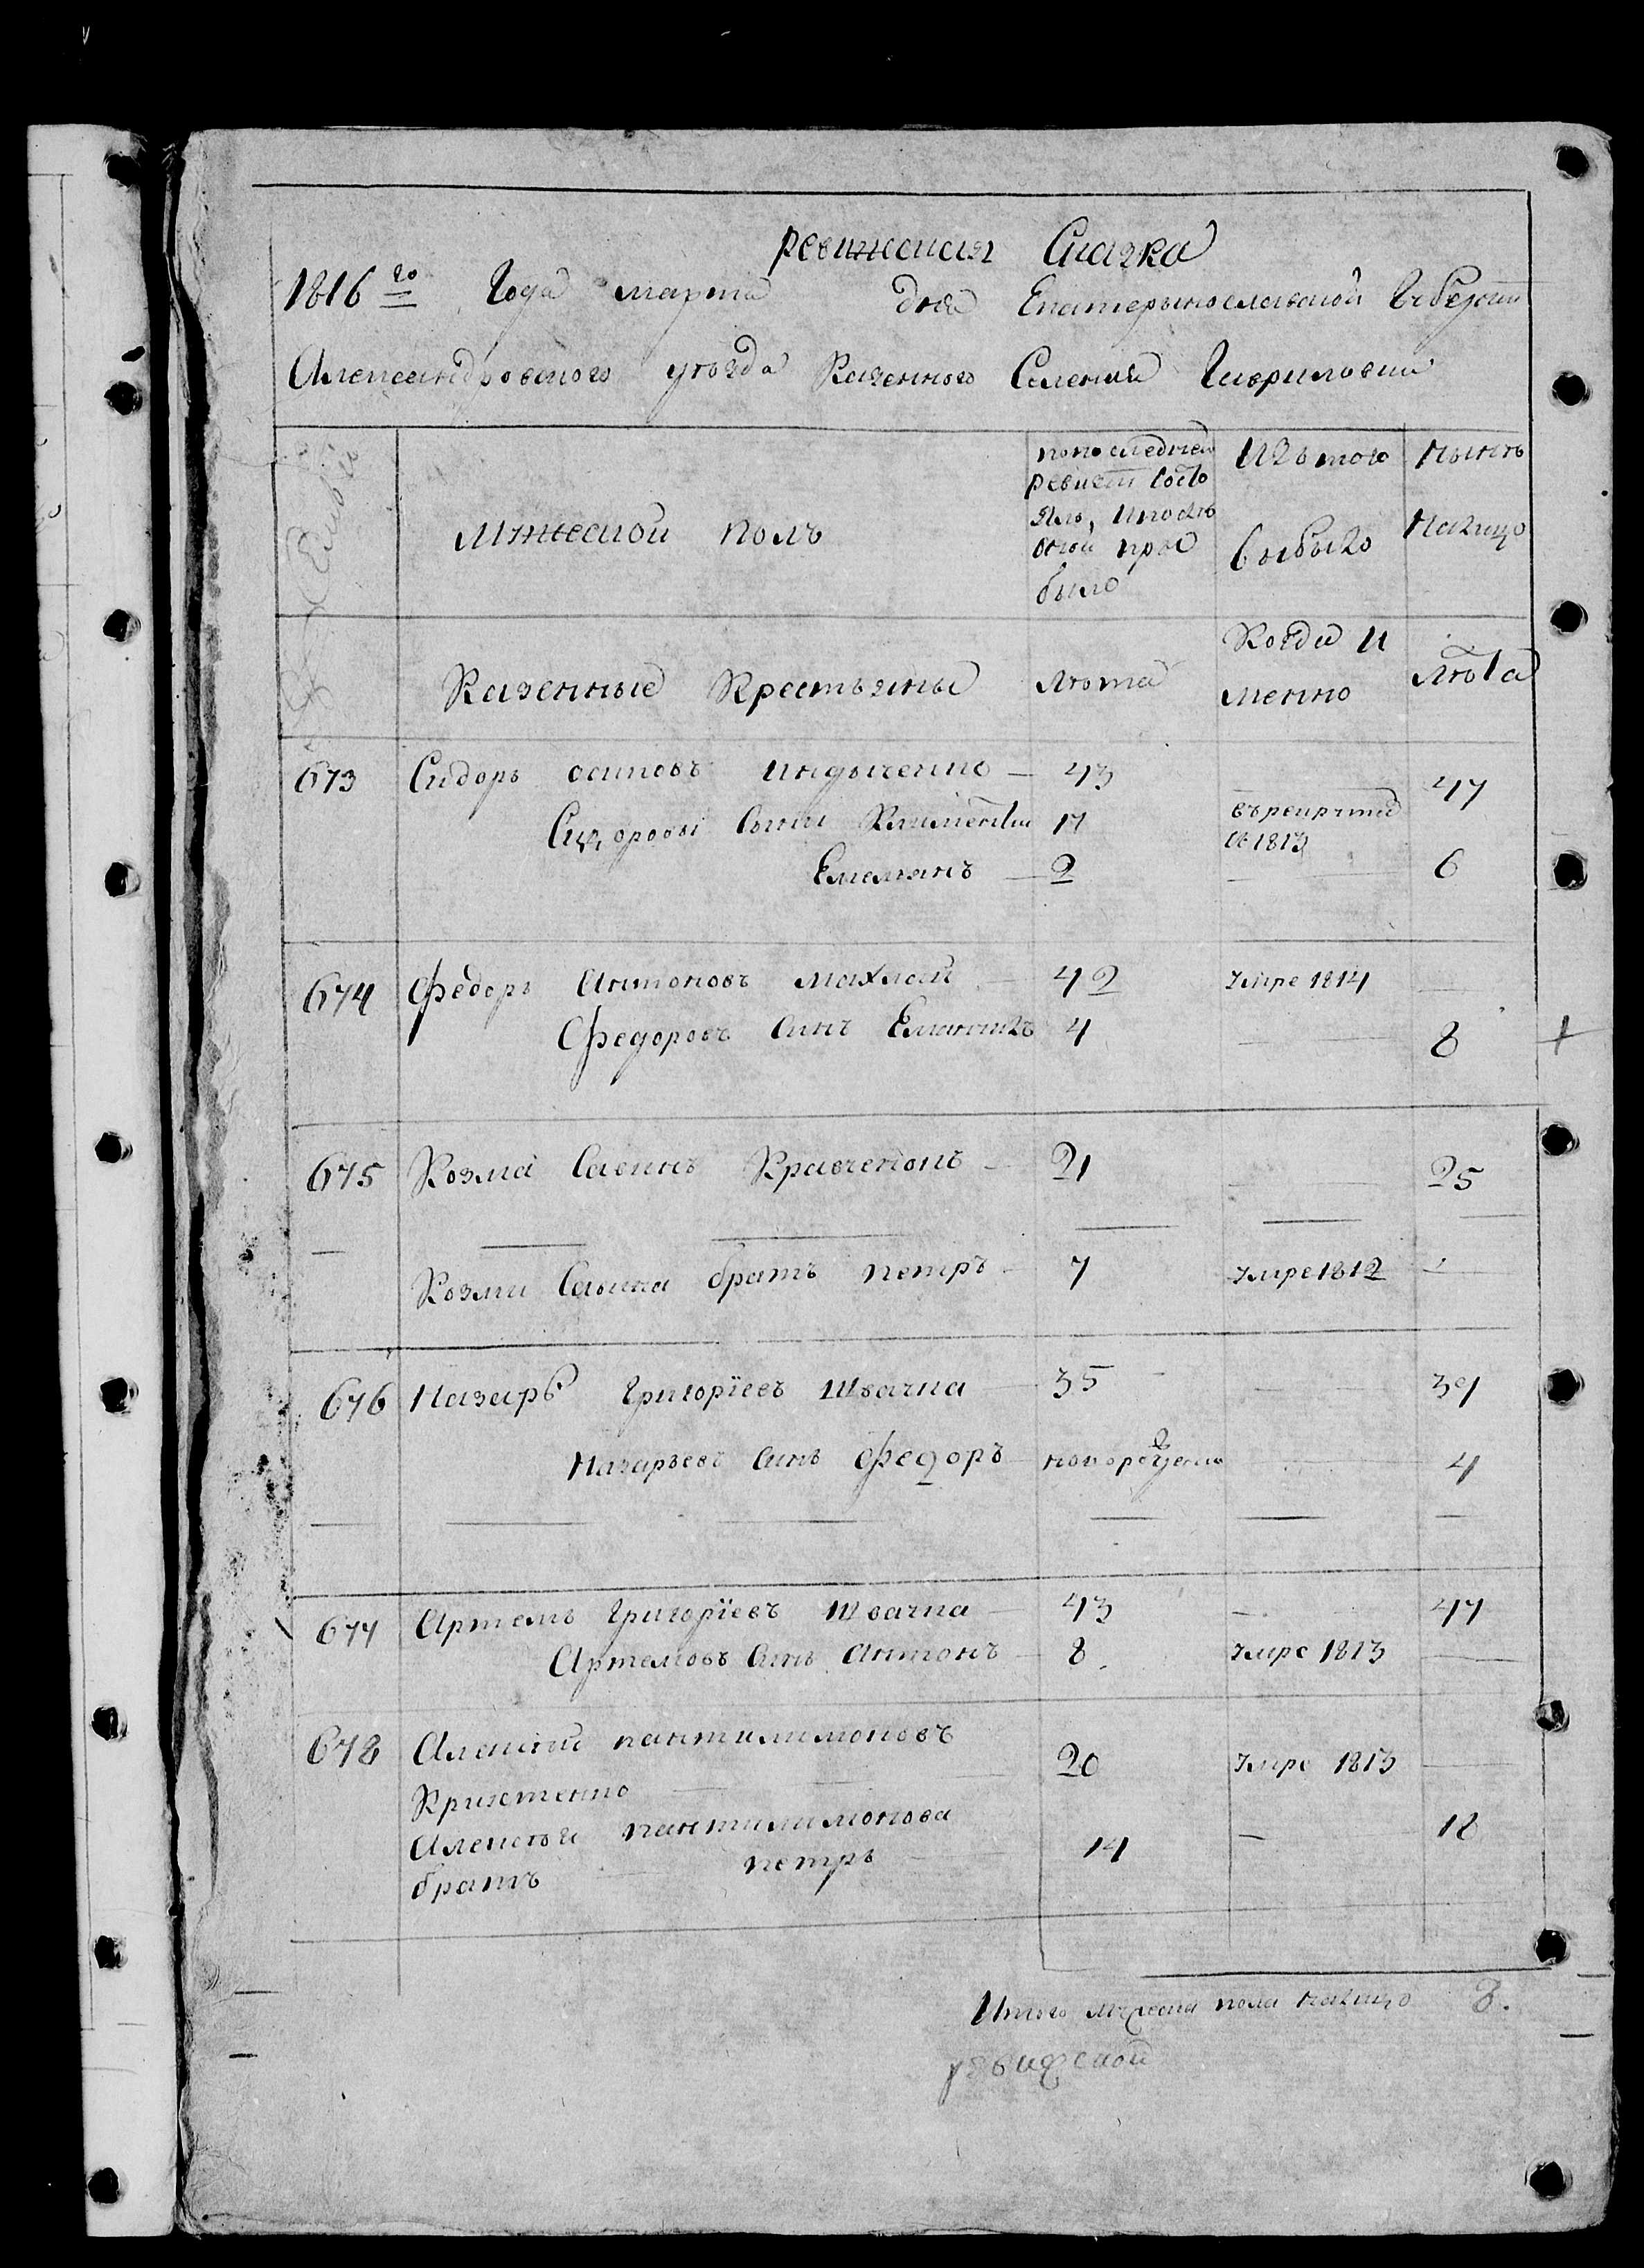 ревижская Сказка
1816го Года марта дня Екатерынославской Губерни
Александровского уезда Казенного Селения Гавриловки
Семьи
Мужеской полъ
попоследней ревизи состо яло, ипосле оной при было
Изътого выбыло
Нынѣ налицо
Казенные Крестьяны
Лѣта
Когда И менно
Лѣта
673 Сидоръ осиповъ индыченко — 43 47
Сидоровы Сыни Климентий 17 върекруты въ1813
Емельянъ — 2 — 6
674 Федоръ Антоновъ махлай — 42 Умре 1814 —
Федоровъ Синъ 4 — 8
675 Козма Савинъ Кравченокъ — 21 — 25
Козми Савина братъ петръ — 7 Умре 1812 —
676 Назаръ Григорїевъ Швачка — 35 — 39
Назарьевъ Синъ Федоръ новорожденъ — 4
677 Артемъ Григорїевъ Швачка — 43 — 47
Артемовъ Синъ Антонъ — 8. Умре 1813 —
678 Алексѣй пантилимоновъ
20 Умре 1813 —
Алексѣя пантилимонова
братъ петръ — 14 — 18
Итого мужеска пола налицо 8.